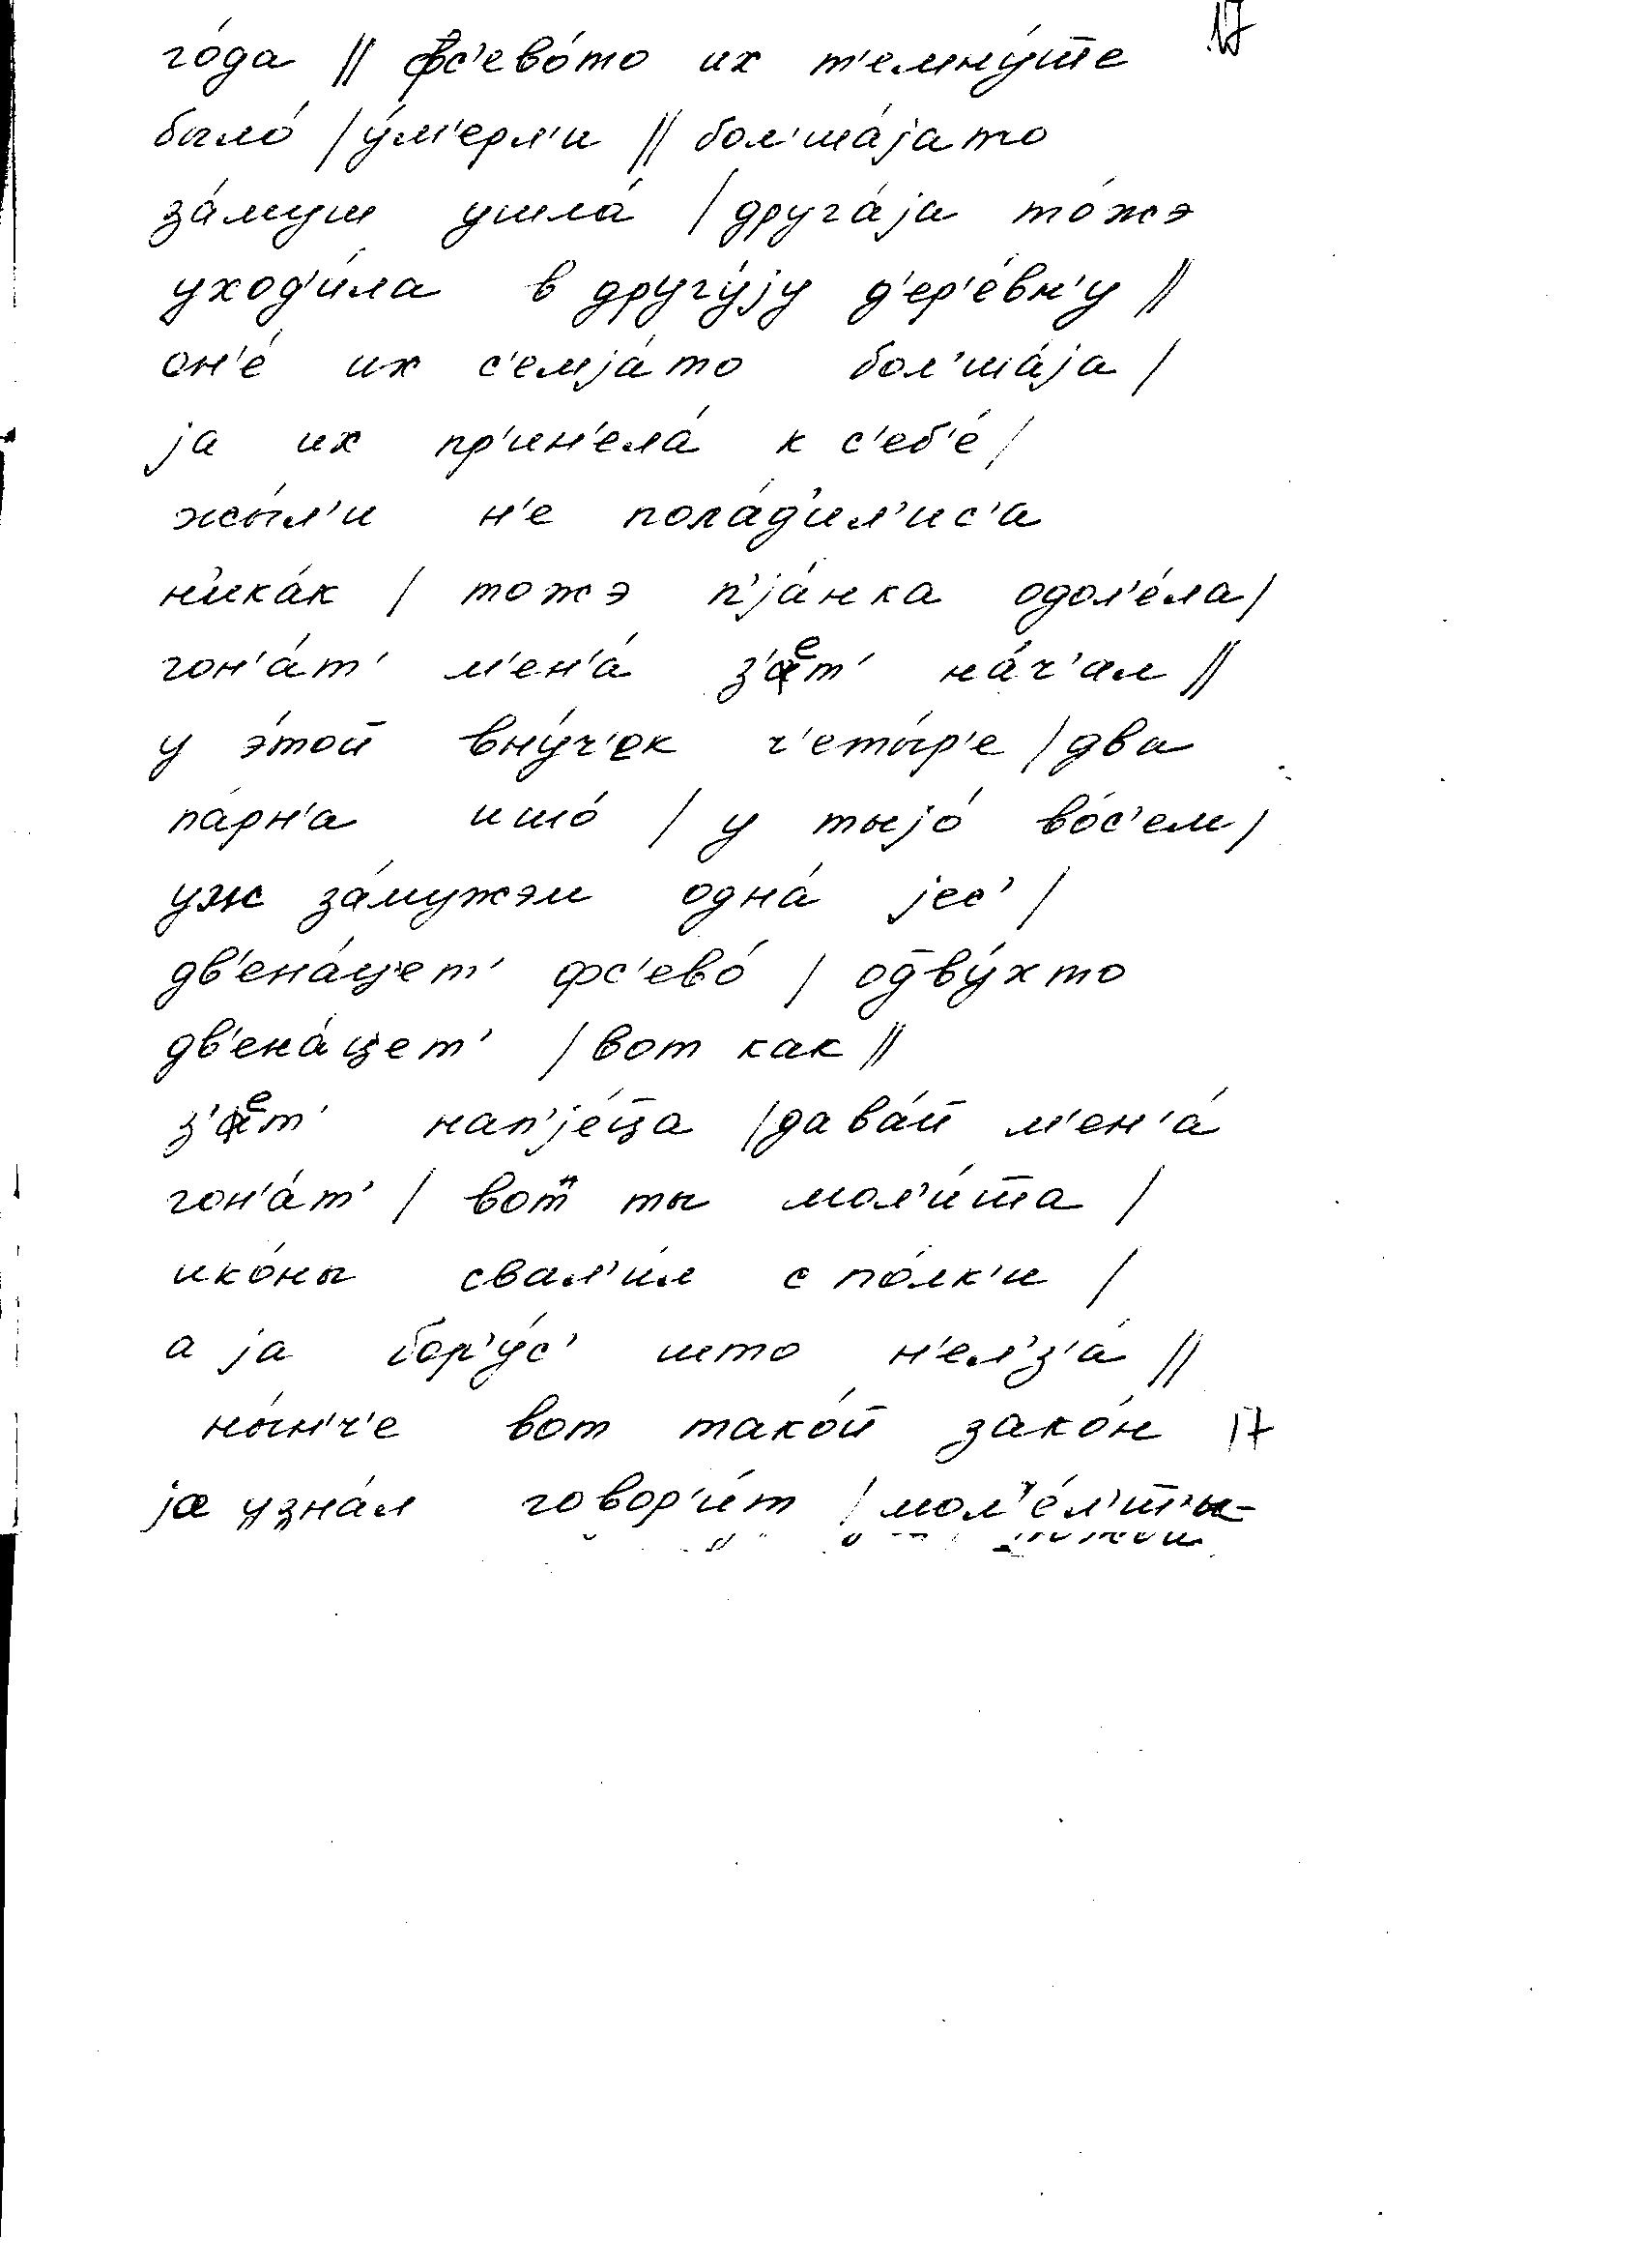 17
го́да || фс'ево́то их т'емну́т̅е
было́ | у́м'ерл'и || бол'ша́jато
за́муш ушла́ | друга́jа то́жэ
уход'и́ла в другу́jу д'ер'е́вн'у ||
он'е́ их с'емjа́то бол'ша́jа |
jа их пр'ин'ела́ к с'еб'е́ |
жы́л'и н'е пола́д'ил'ис'а
н'ика́к | тожэ п'jа́нка одол'е́ла |
гон'а́т' м'ен'а́ з'ет' на́ч'ал ||
у э́той вну́ч'ок ч'еты́р'е | два
па́рн'а ишо́ | у тыjо́ во́с'ем |
уж за́мужэм одна́ jес' |
дв'ена́ц'ет' фс'ево́ | од̅ву́хто
дв'ена́цет' | вот как ||
з'ет' нап'jе́ц̅а | дава́й м'ен'а́
гон'а́т' | вот ты мол'и́т̅а |
ико́ны свал'и́л с по́лк'и |
а jа бор'у́с' што н'ел'з'а́ ||
ны́н'ч'е вот тако́й зако́н 17
jа узна́л говор'и́т |